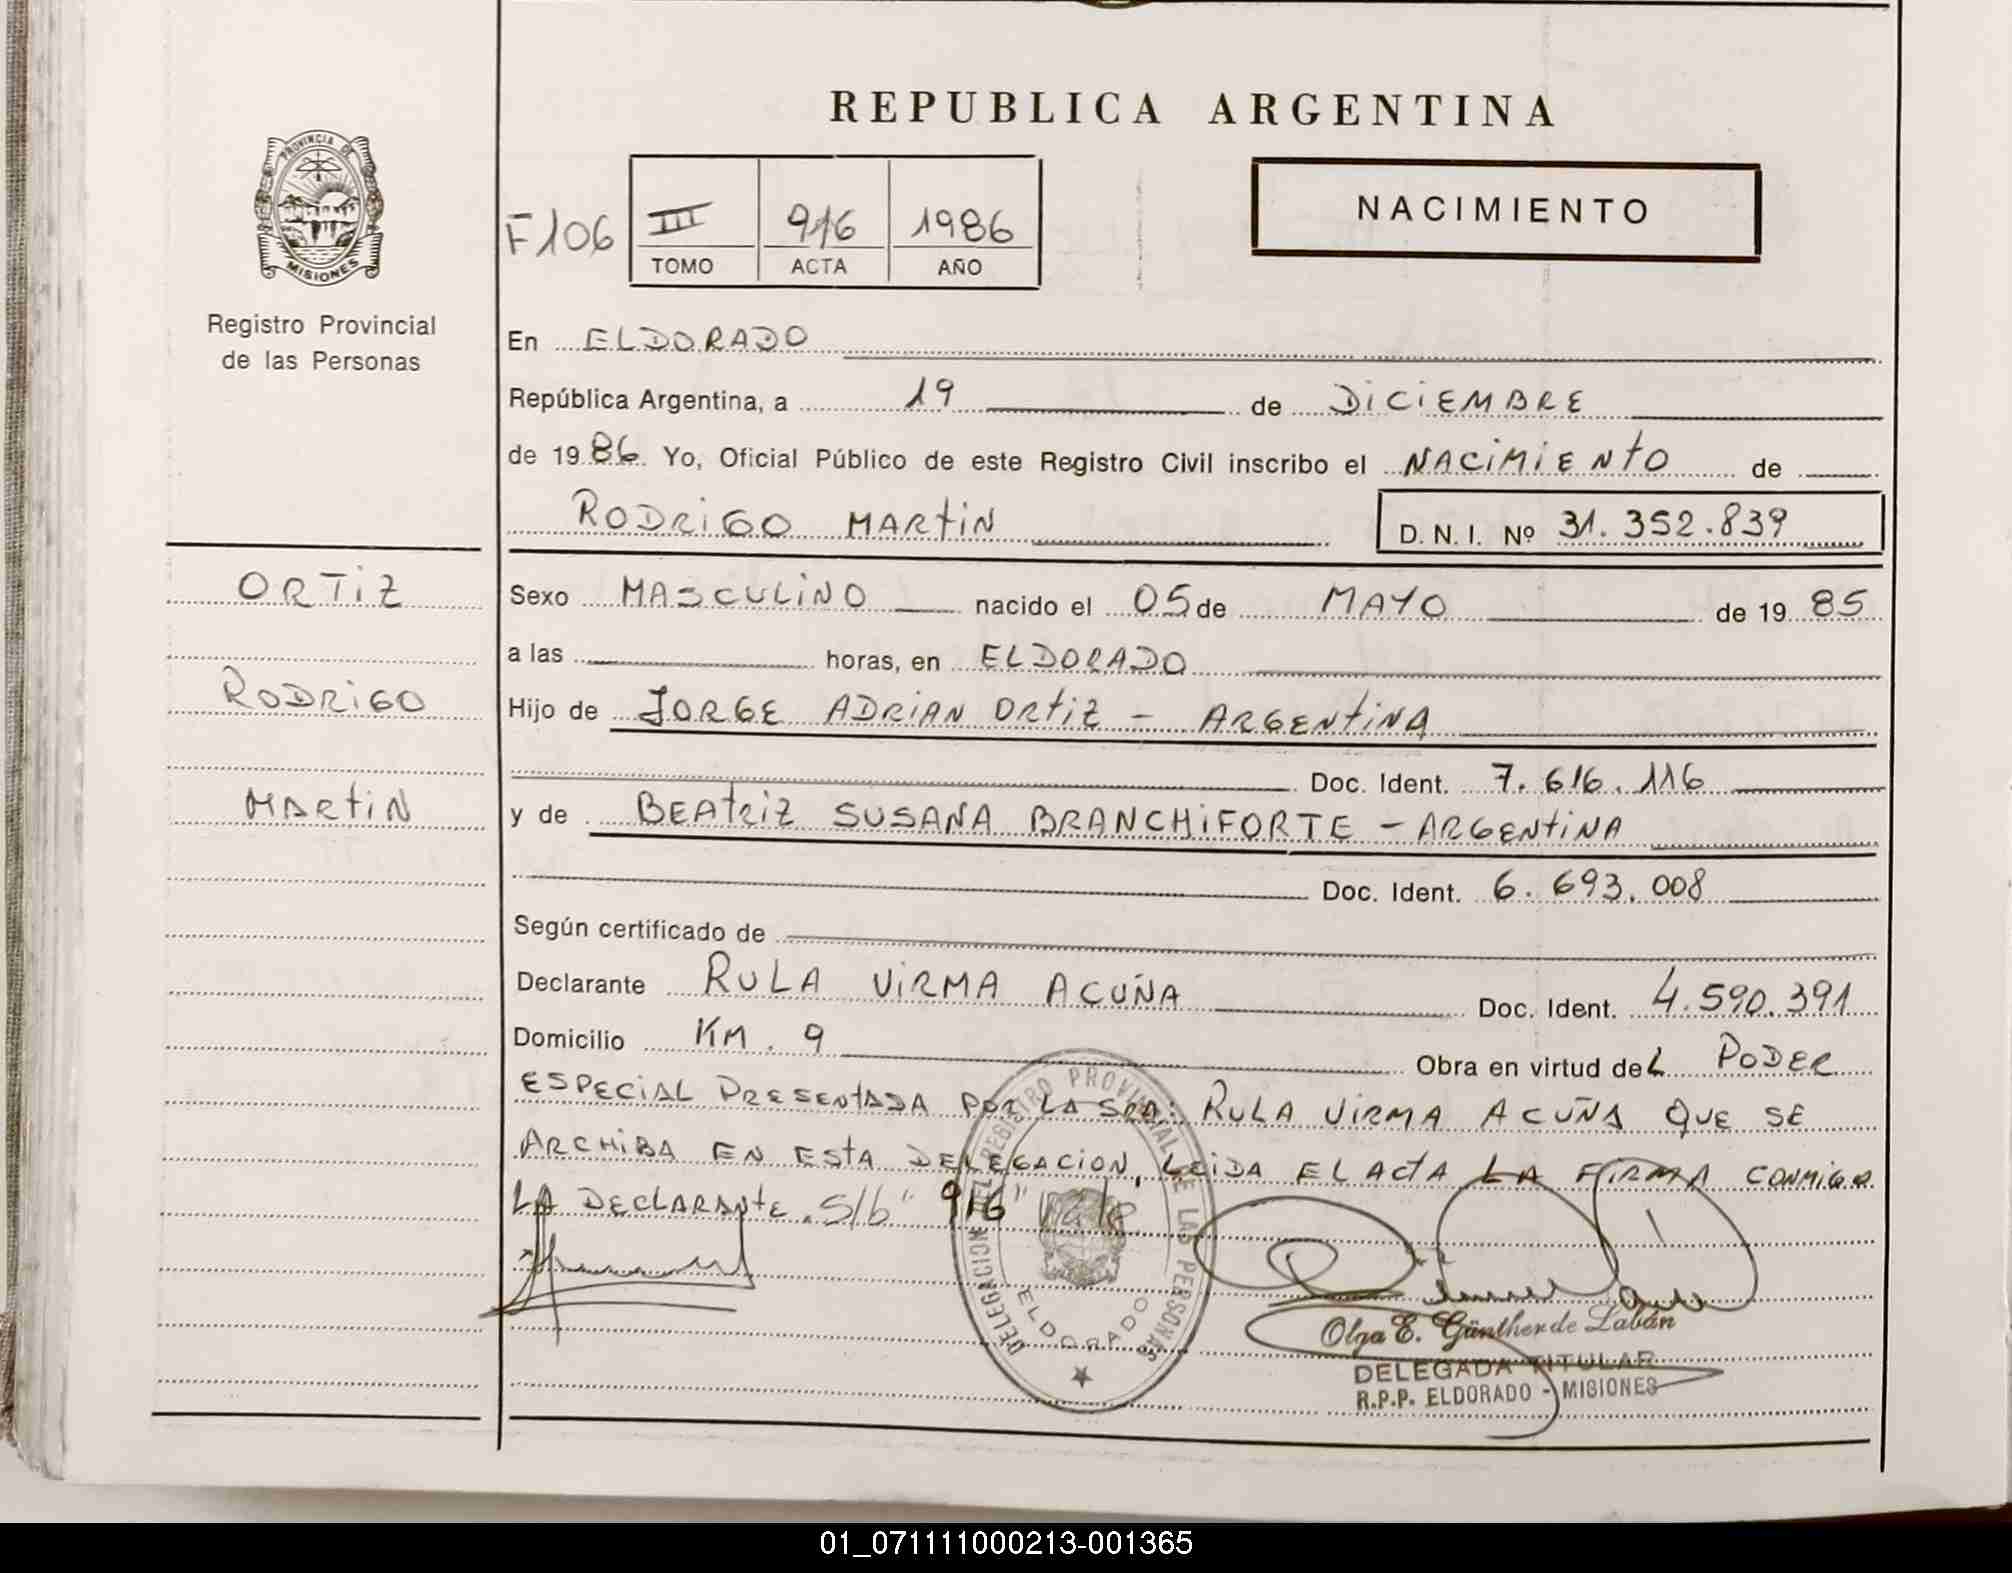 REPUBLICA ARGENTINA
PROVINCIA DE
MISIONES
Registro Provincial
de las Personas
F106
III
TOMO
916
ACTA
1986
AÑO
NACIMIENTO
En ELDORADO
República Argentina, a 19 de DICIEMBRE
de 1986 Yo, Oficial Público de este Registro Civil inscribo el NACIMIENTO de
RODRIGO MARTIN
D. N. I. Nº 31.352.839
ORTIZ
RODRIGO
MARTIN
Sexo MASCULINO nacido el 05 de MAYO de 1985
a las horas, en ELDORADO
Hijo de JORGE ADRIAN ORTIZ - ARGENTINA
Doc. Ident. 7.616.116
y de BEATRIZ SUSANA BRANCHIFORTE - ARGENTINA
Doc. Ident. 6.693.008
Según certificado de
Declarante RULA VIRMA ACUÑA Doc. Ident. 4.590.391
Domicilio KM. 9 Obra en virtud deL PODER
ESPECIAL PRESENTADA POR LA SRA: RULA VIRMA ACUÑA QUE SE
ARCHIBA EN ESTA DELEGACION, LEIDA EL ACTA LA FIRMA CONMIGO
LA DECLARANTE. S/b "916" Vale
DELEGACION DEL REGISTRO PROVINCIAL DE LAS PERSONAS
ELDORADO
Olga E. Günther de Labán
DELEGADA TITULAR
R.P.P. ELDORADO - MISIONES
01_071111000213-001365